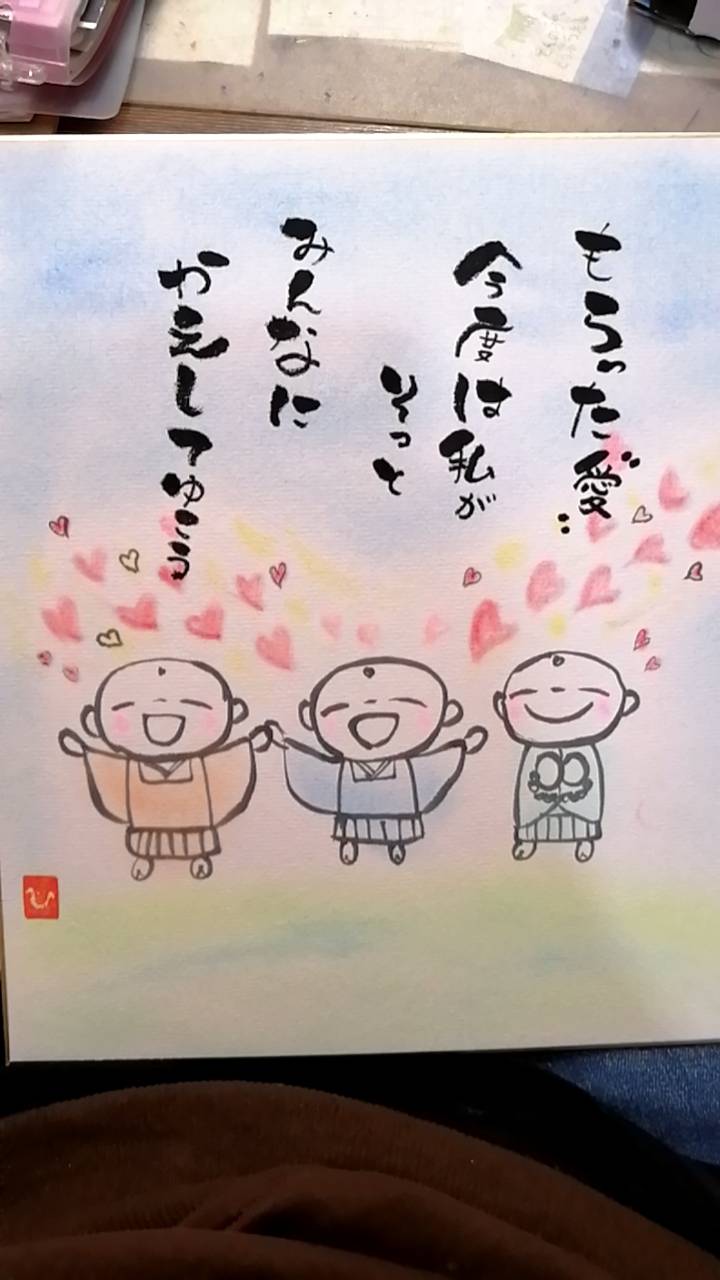 もらった愛‥
今度は私が
そっと
みんなに
かえしてゆこう
ひ